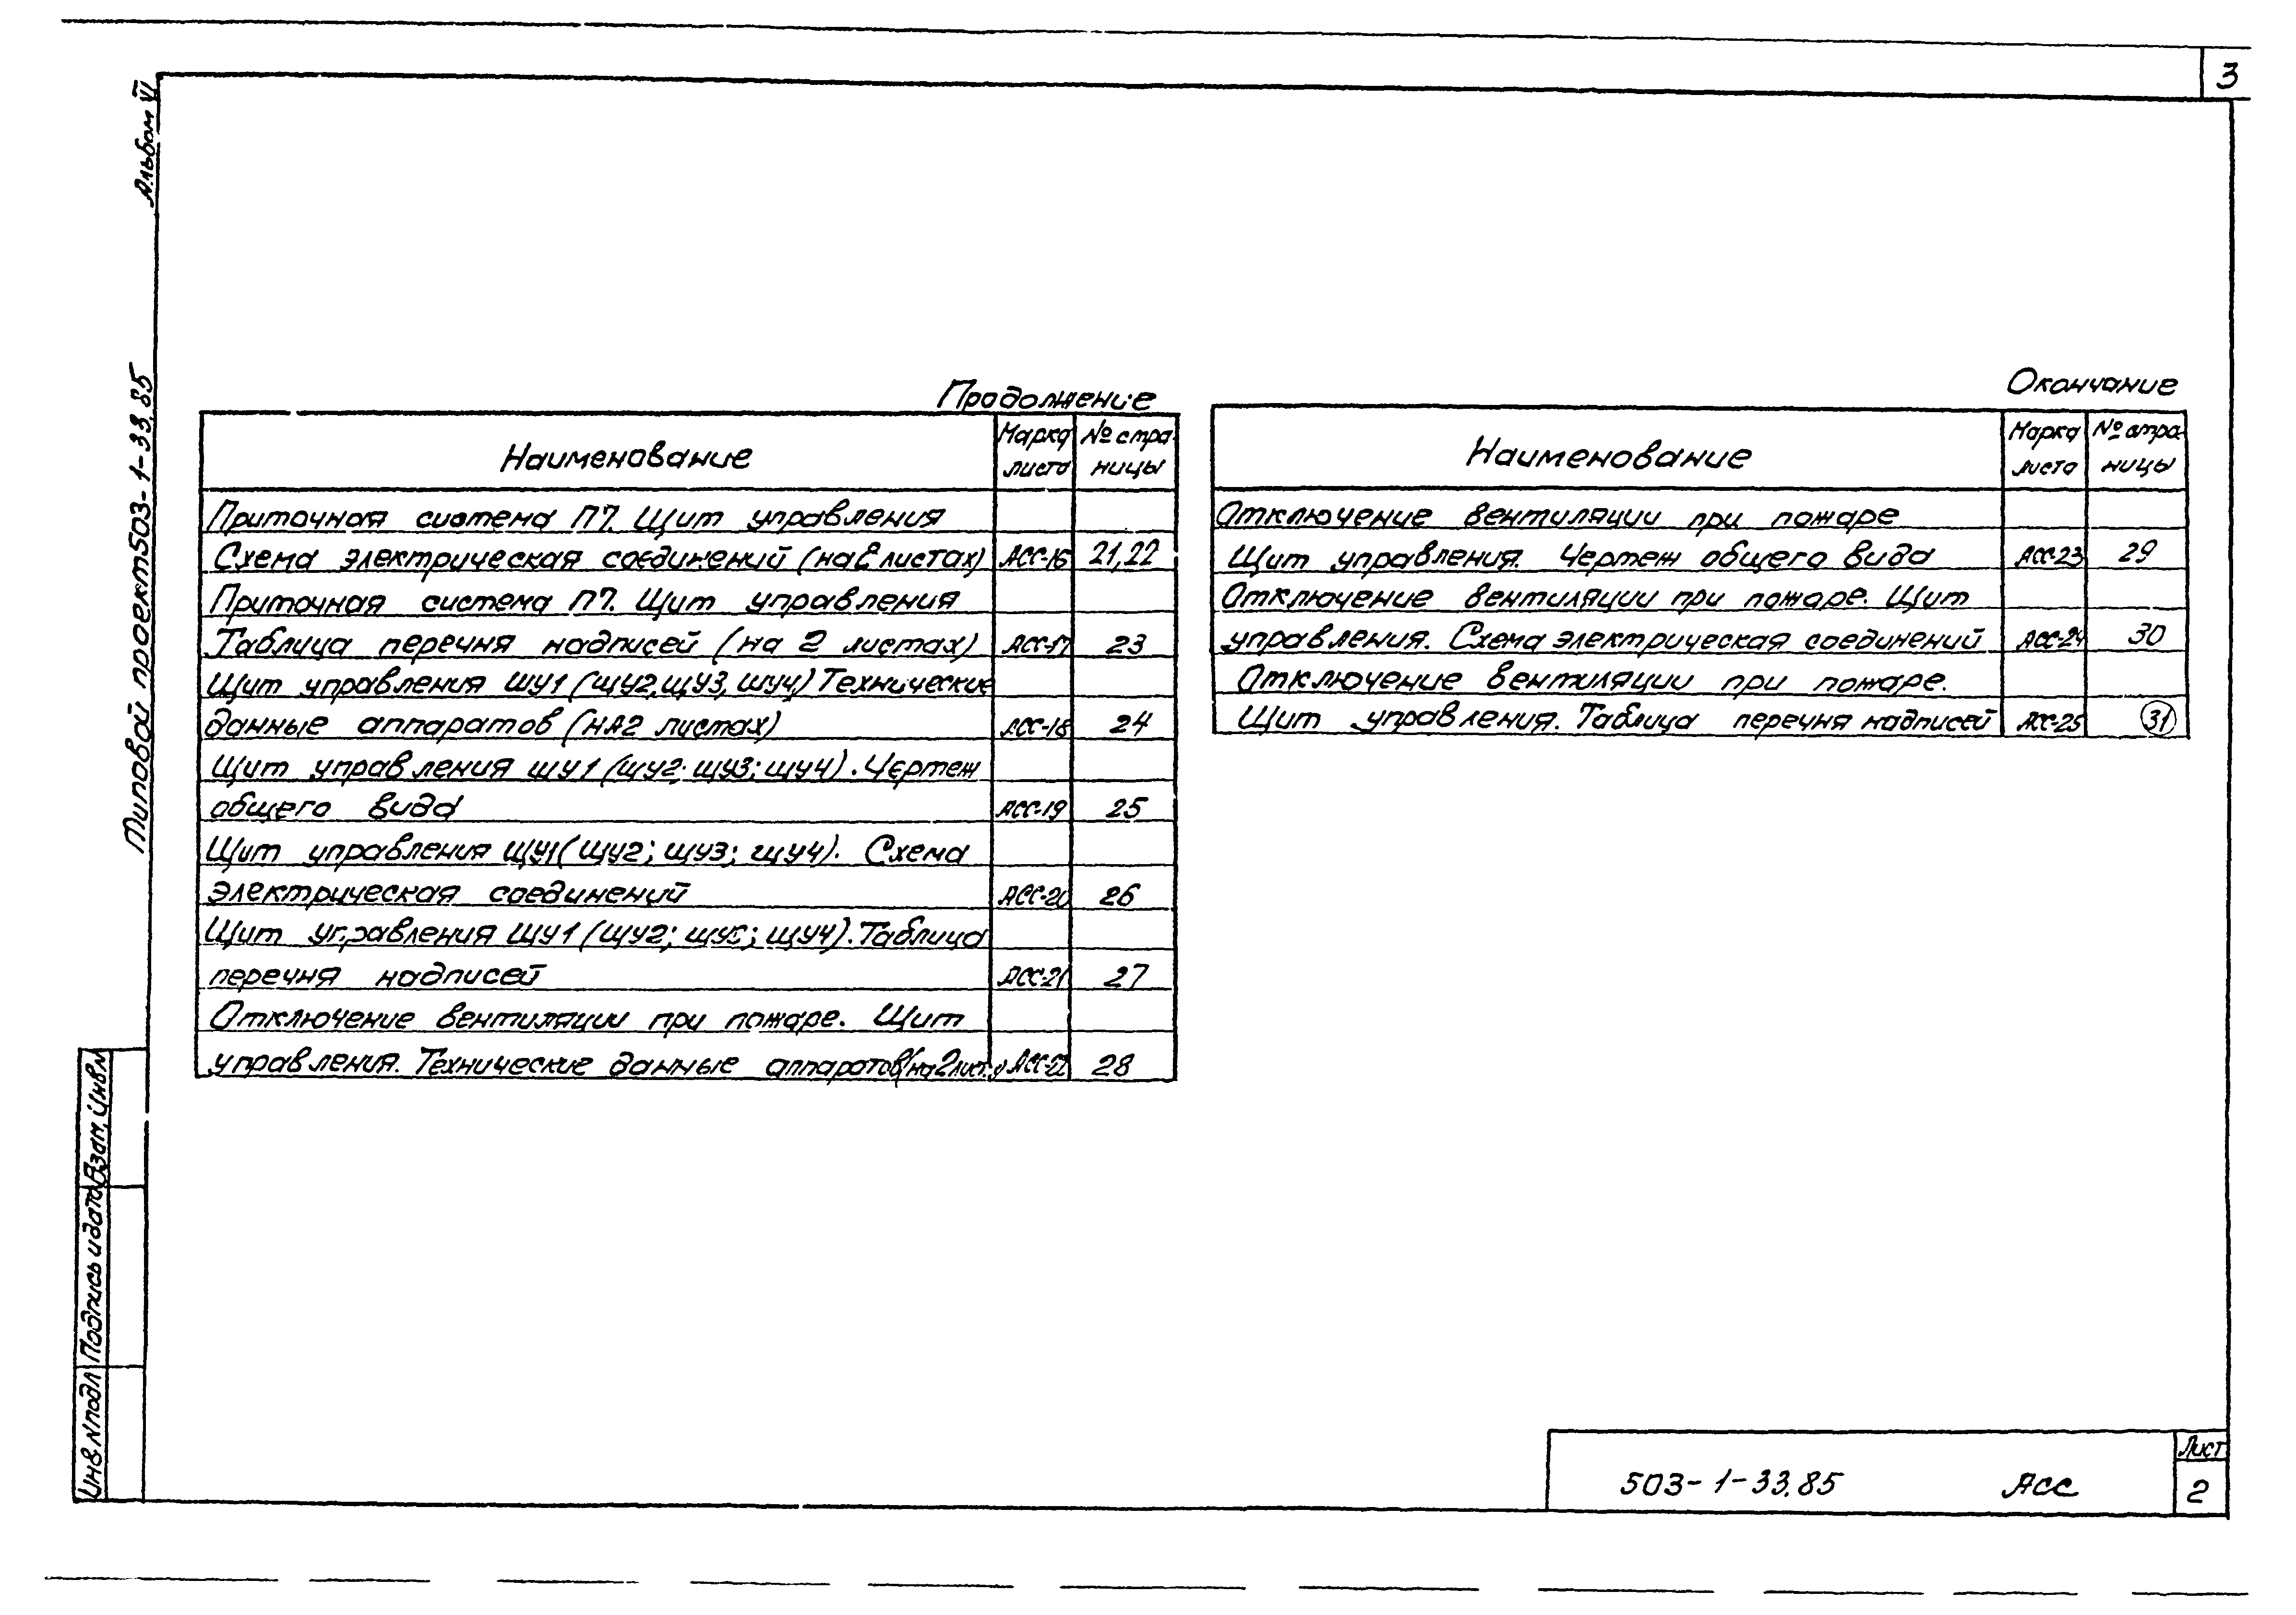 3
Альбом VI
Типовой проект 503-1-33.85
Продолжение
Наименование Марка листа № стра-ницы
Приточная система П7. Щит управления
Схема электрическая соединений (на 2 листах) АСС-16 21,22
Приточная система П7. Щит управления
Таблица перечня надписей (на 2 листах) АСС-17 23
Щит управления ЩУ1 (ЩУ2, ЩУ3, ЩУ4) Технические
данные аппаратов (НА 2 листах) АСС-18 24
Щит управления ЩУ1 (ЩУ2; ЩУ3; ЩУ4). Чертеж
общего вида АСС-19 25
Щит управления ЩУ1 (ЩУ2; ЩУ3; ЩУ4). Схема
электрическая соединений АСС-20 26
Щит управления ЩУ1 (ЩУ2; ЩУ3; ЩУ4). Таблица
перечня надписей АСС-21 27
Отключение вентиляции при пожаре. Щит
управления. Технические данные аппаратов (на 2 лист.) АСС-22 28
Окончание
Наименование Марка листа № стра-ницы
Отключение вентиляции при пожаре
Щит управления. Чертеж общего вида АСС-23 29
Отключение вентиляции при пожаре. Щит
управления. Схема электрическая соединений АСС-24 30
Отключение вентиляции при пожаре.
Щит управления. Таблица перечня надписей АСС-25 31
Взам. Инв.N
Подпись и дата
Инв.N подл
503-1-33.85 АСС
Лист
2